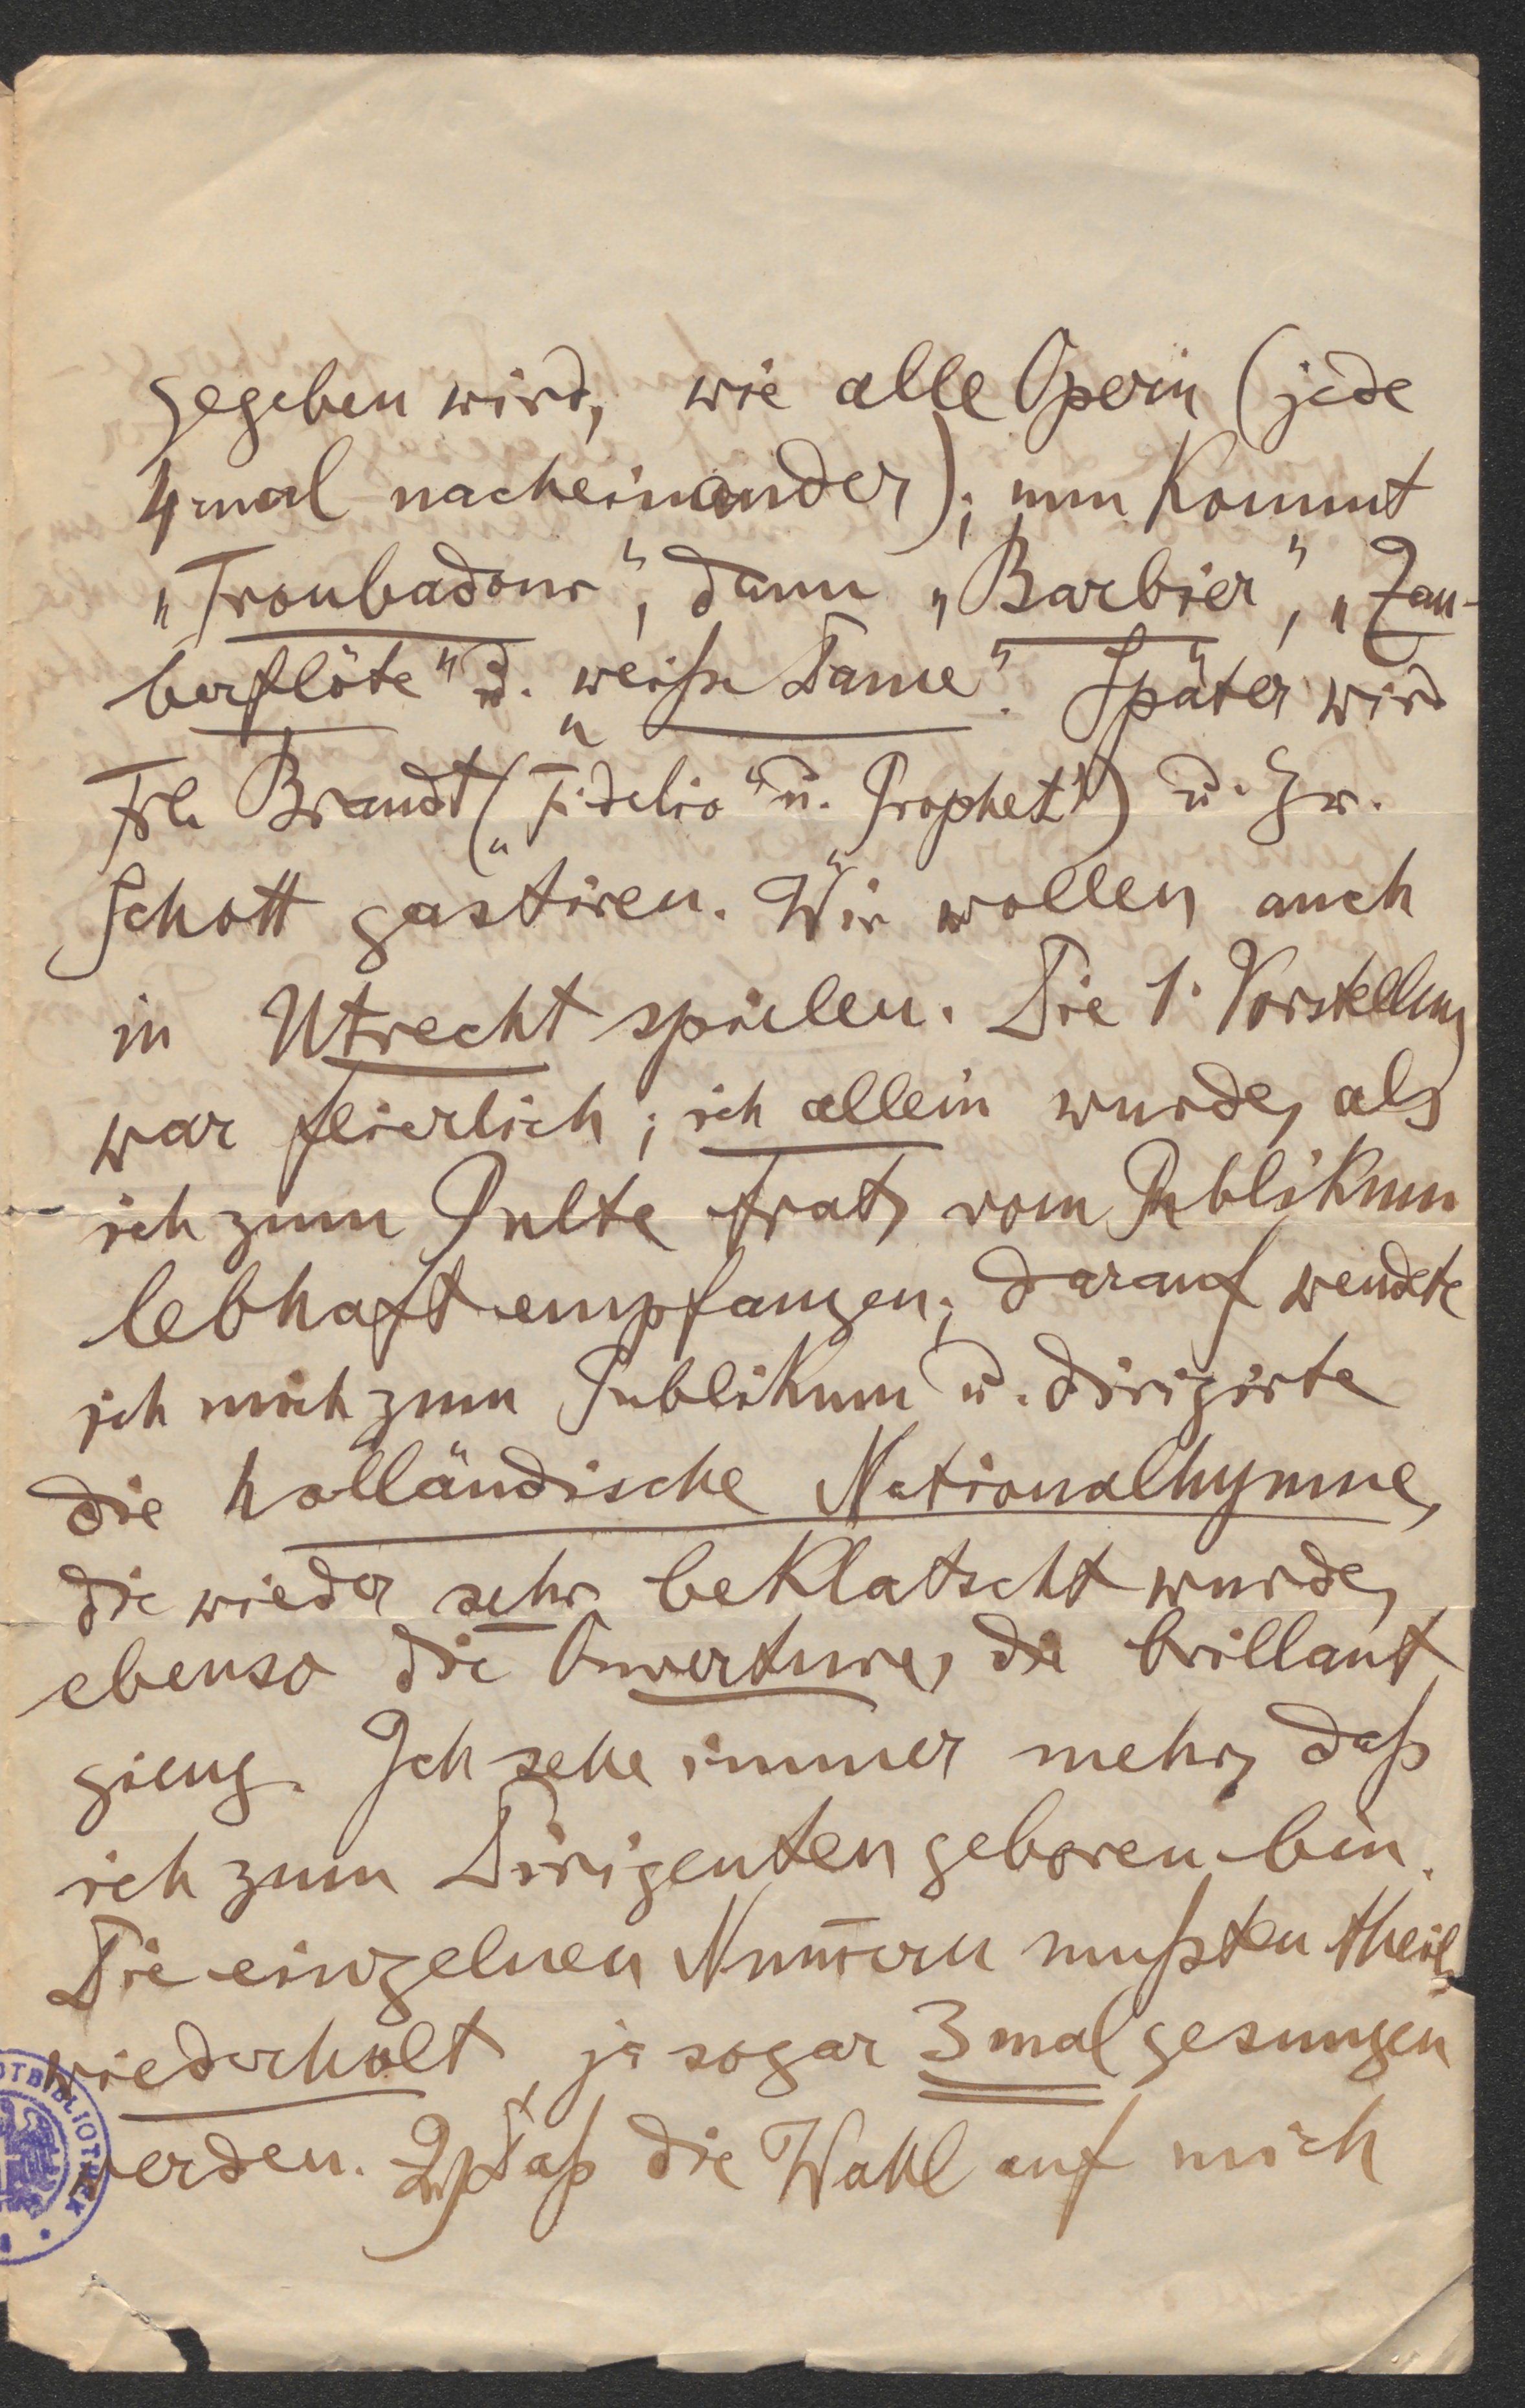 gegeben wird, wie alle Opern (jede
4 mal nacheinander); nun kommt
„Troubadour“, dann „Barbier“, „Zau-
berflöte“ u. „weiße Dame“. Später wird
Frl. Brandt („Fidelio“ u. Prophet“) u. Hr.
Schott gastiren. Wir wollen auch
in Utrecht spielen. Die 1. Vorstellung
war feierlich; ich allein wurde, als
ich zum Pulte trat, vom Publikum
lebhaft empfangen; darauf wendete
ich mich zum Publikum u. dirigirte
die holländische Nationalhymne,
die wieder sehr beklatscht wurde,
ebenso die Ouverture, die brillant
gieng. Ich sehe immer mehr, daß
ich zum Dirigenten geboren bin.
Die einzelnen Num̄ern mußten theils
wiederholt, ja sogar 3 mal gesungen
werden. 2) Daß die Wahl auf mich